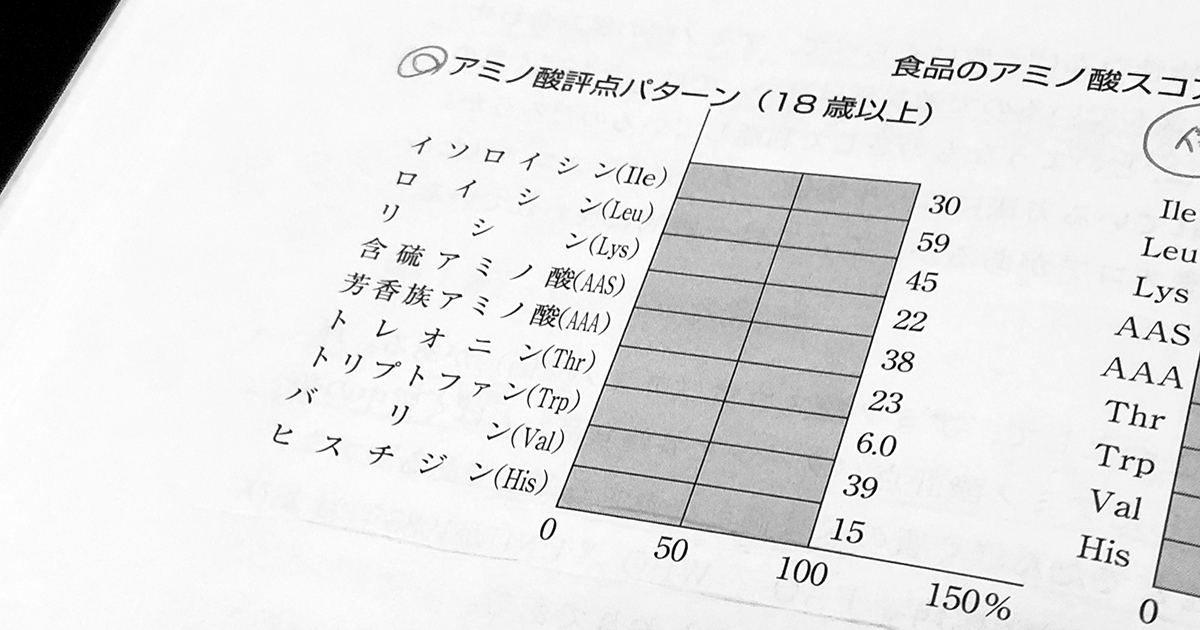 アミノ酸評点パターン（18歳以上）
イソロイシン(Ile) 30
ロイシン(Leu) 59
リシン(Lys) 45
含硫アミノ酸(AAS) 22
芳香族アミノ酸(AAA) 38
トレオニン(Thr) 23
トリプトファン(Trp) 6.0
バリン(Val) 39
ヒスチジン(His) 15
0 50 100 150%
食品のアミノ酸スコ
Ile
Leu
Lys
AAS
AAA
Thr
Trp
Val
His
0